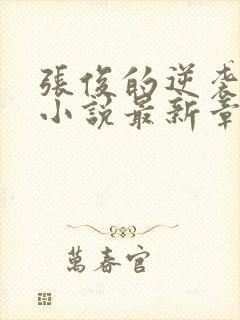 張俊的逆袭
小說最新章
萬春官